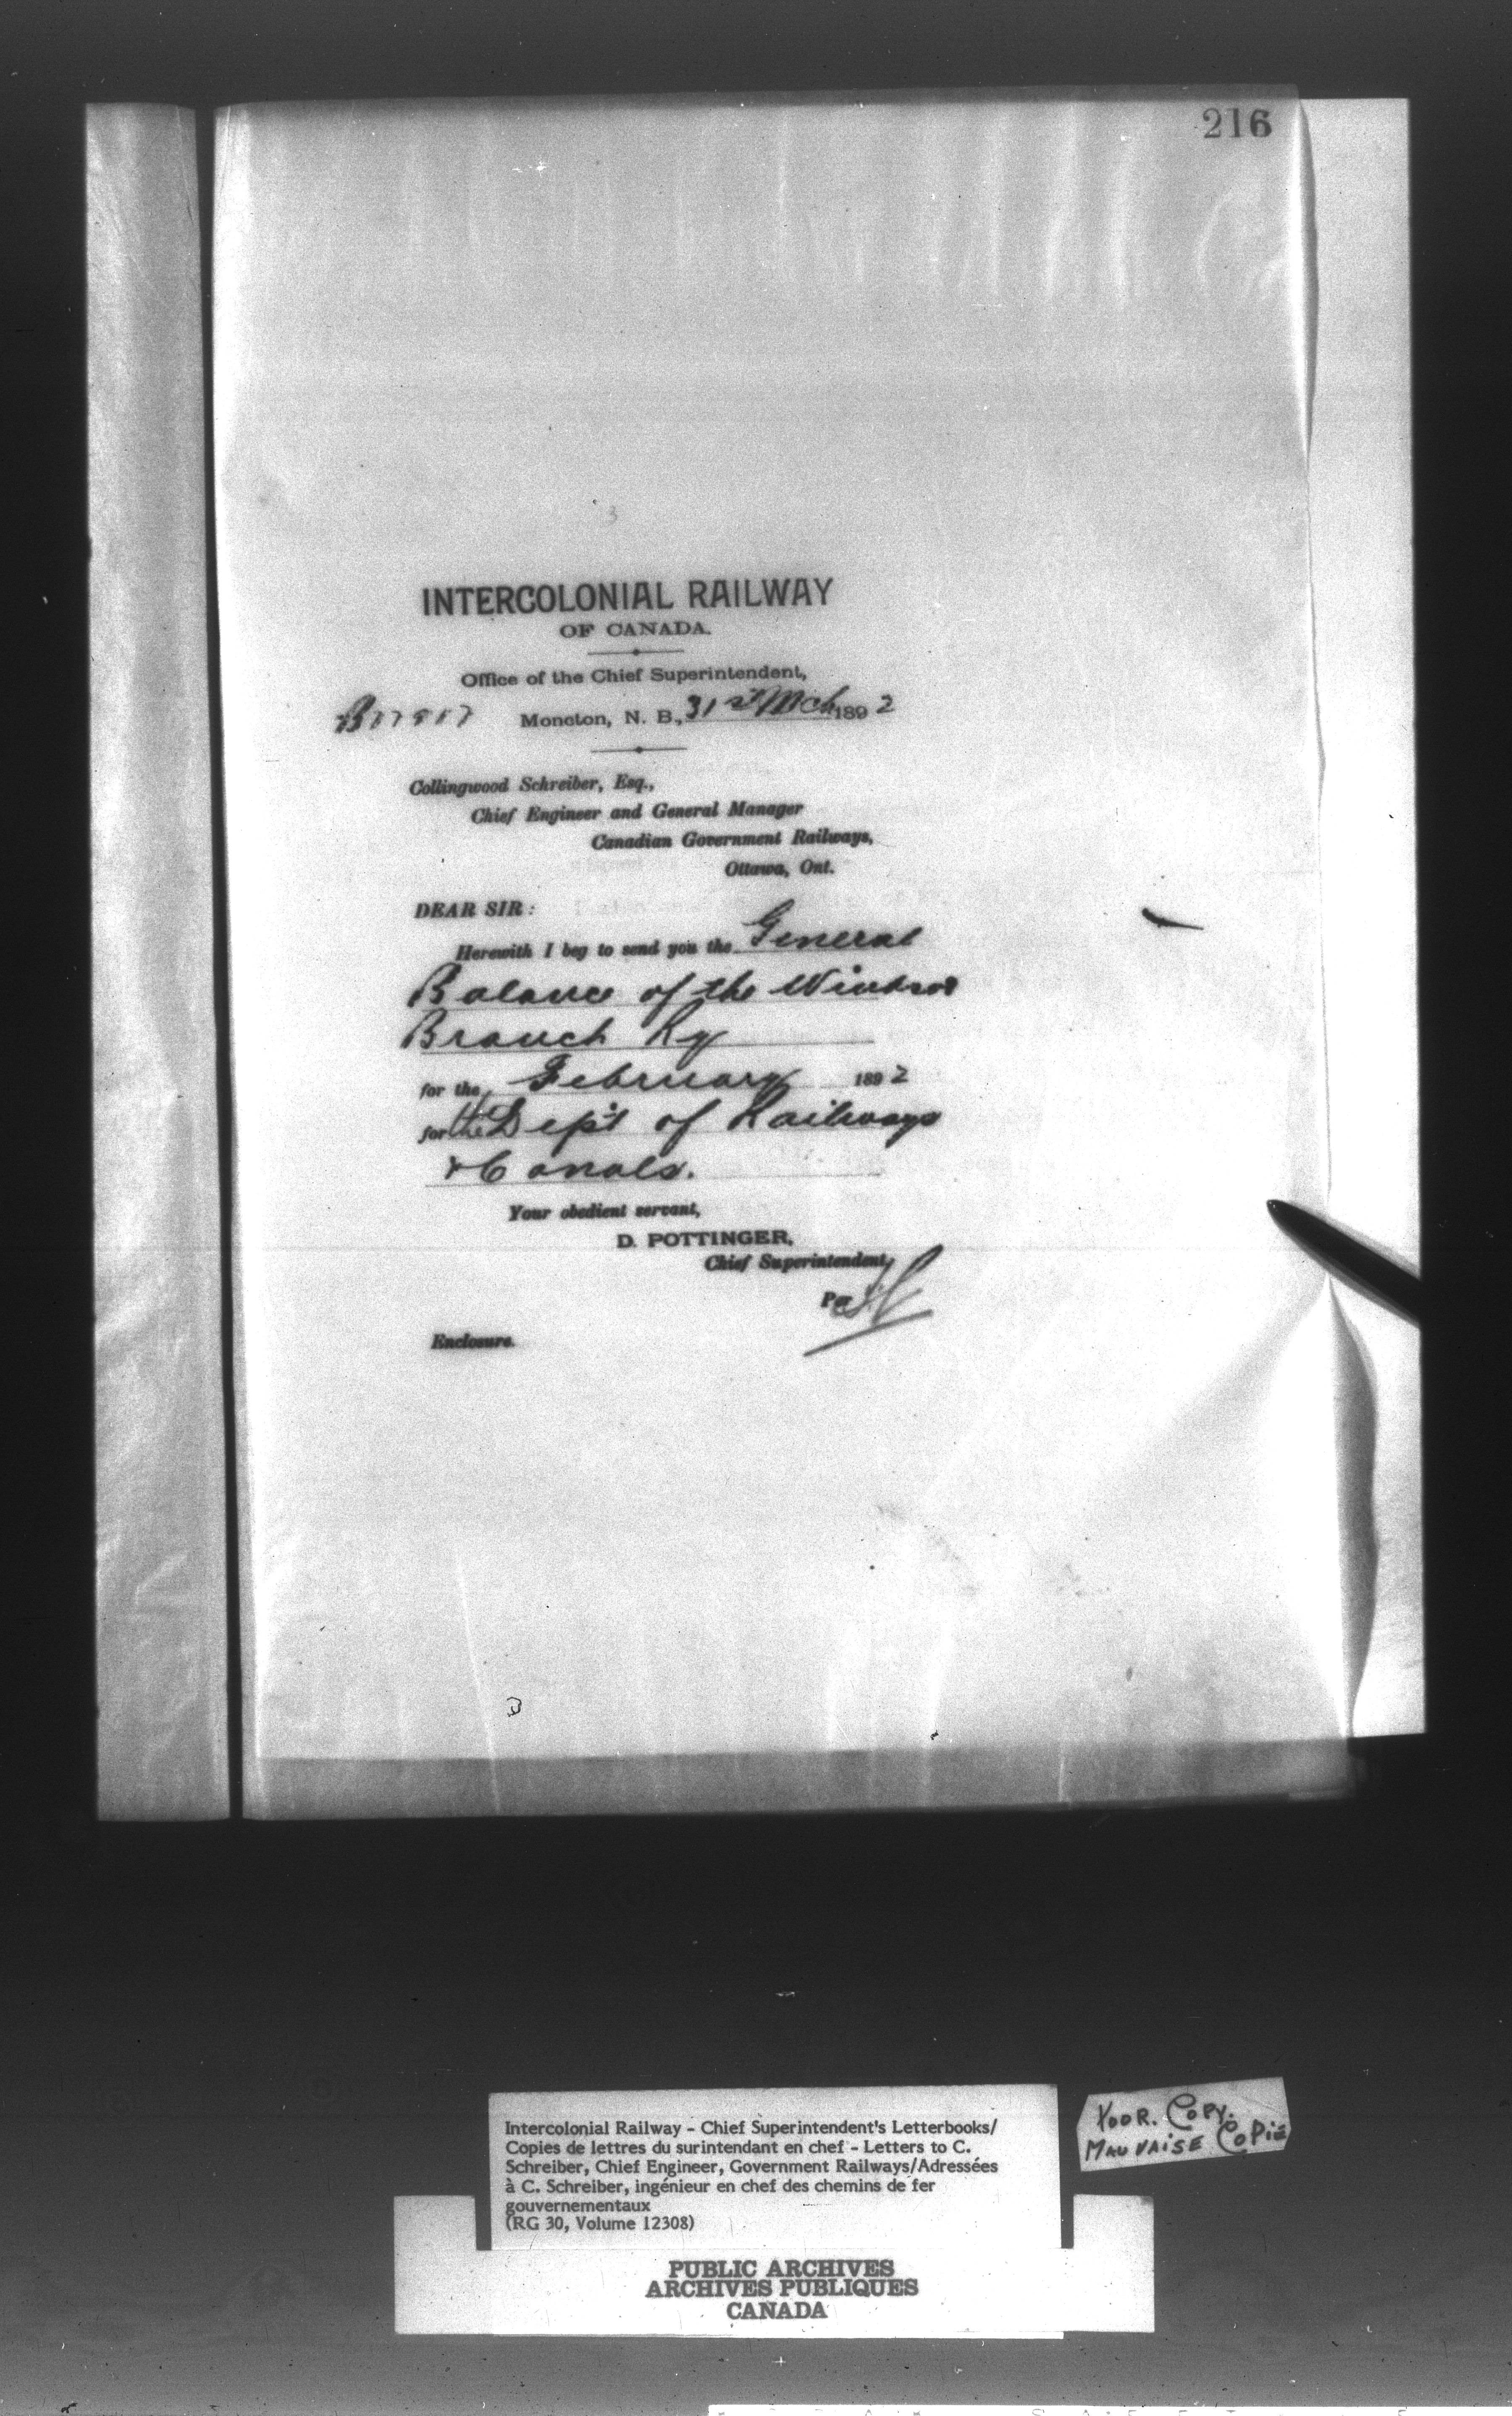 216
INTERCOLONIAL RAILWAY
OF CANADA.
Office of the Chief Superintendent,
Moncton, N. B., 31st Mch 1892
Collingwood Schreiber, Esq.,
Chief Engineer and General Manager
Canadian Government Railways,
Ottawa, Ont.
DEAR SIR:
Herewith I beg to send you the General
Balance of the Windsor
Branch Ry
for the February 1892
for the Dep't of Railways
& Canals.
Your obedient servant,
D. POTTINGER,
Chief Superintendent,
Per
Enclosure.
Intercolonial Railway - Chief Superintendent's Letterbooks/
Copies de lettres du surintendant en chef - Letters to C.
Schreiber, Chief Engineer, Government Railways/Adressées
à C. Schreiber, ingénieur en chef des chemins de fer
gouvernementaux
(RG 30, Volume 12308)
POOR. COPY.
MAUVAISE COPIE
PUBLIC ARCHIVES
ARCHIVES PUBLIQUES
CANADA